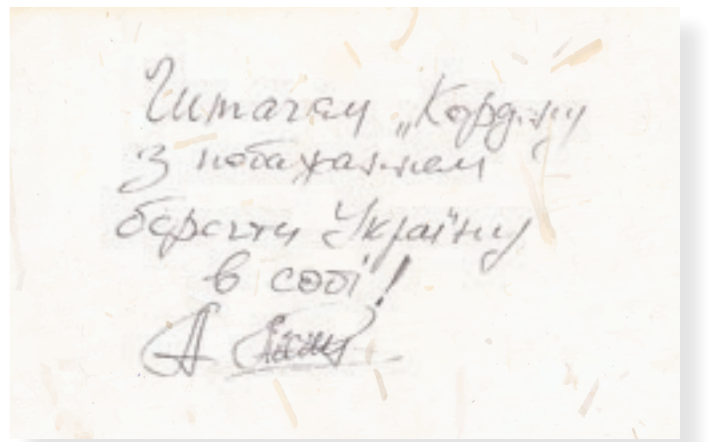 Читачам „Кордону
з побажанням
берегти Україну
в собі!